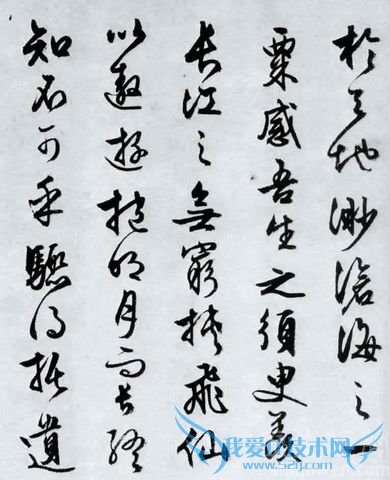 於天地渺滄海之一
粟感吾生之須臾羨
長江之無窮挾飛仙
以遨遊抱明月而長終
知不可乎驟得托遺
我爱IT技术网
www.52ij.com